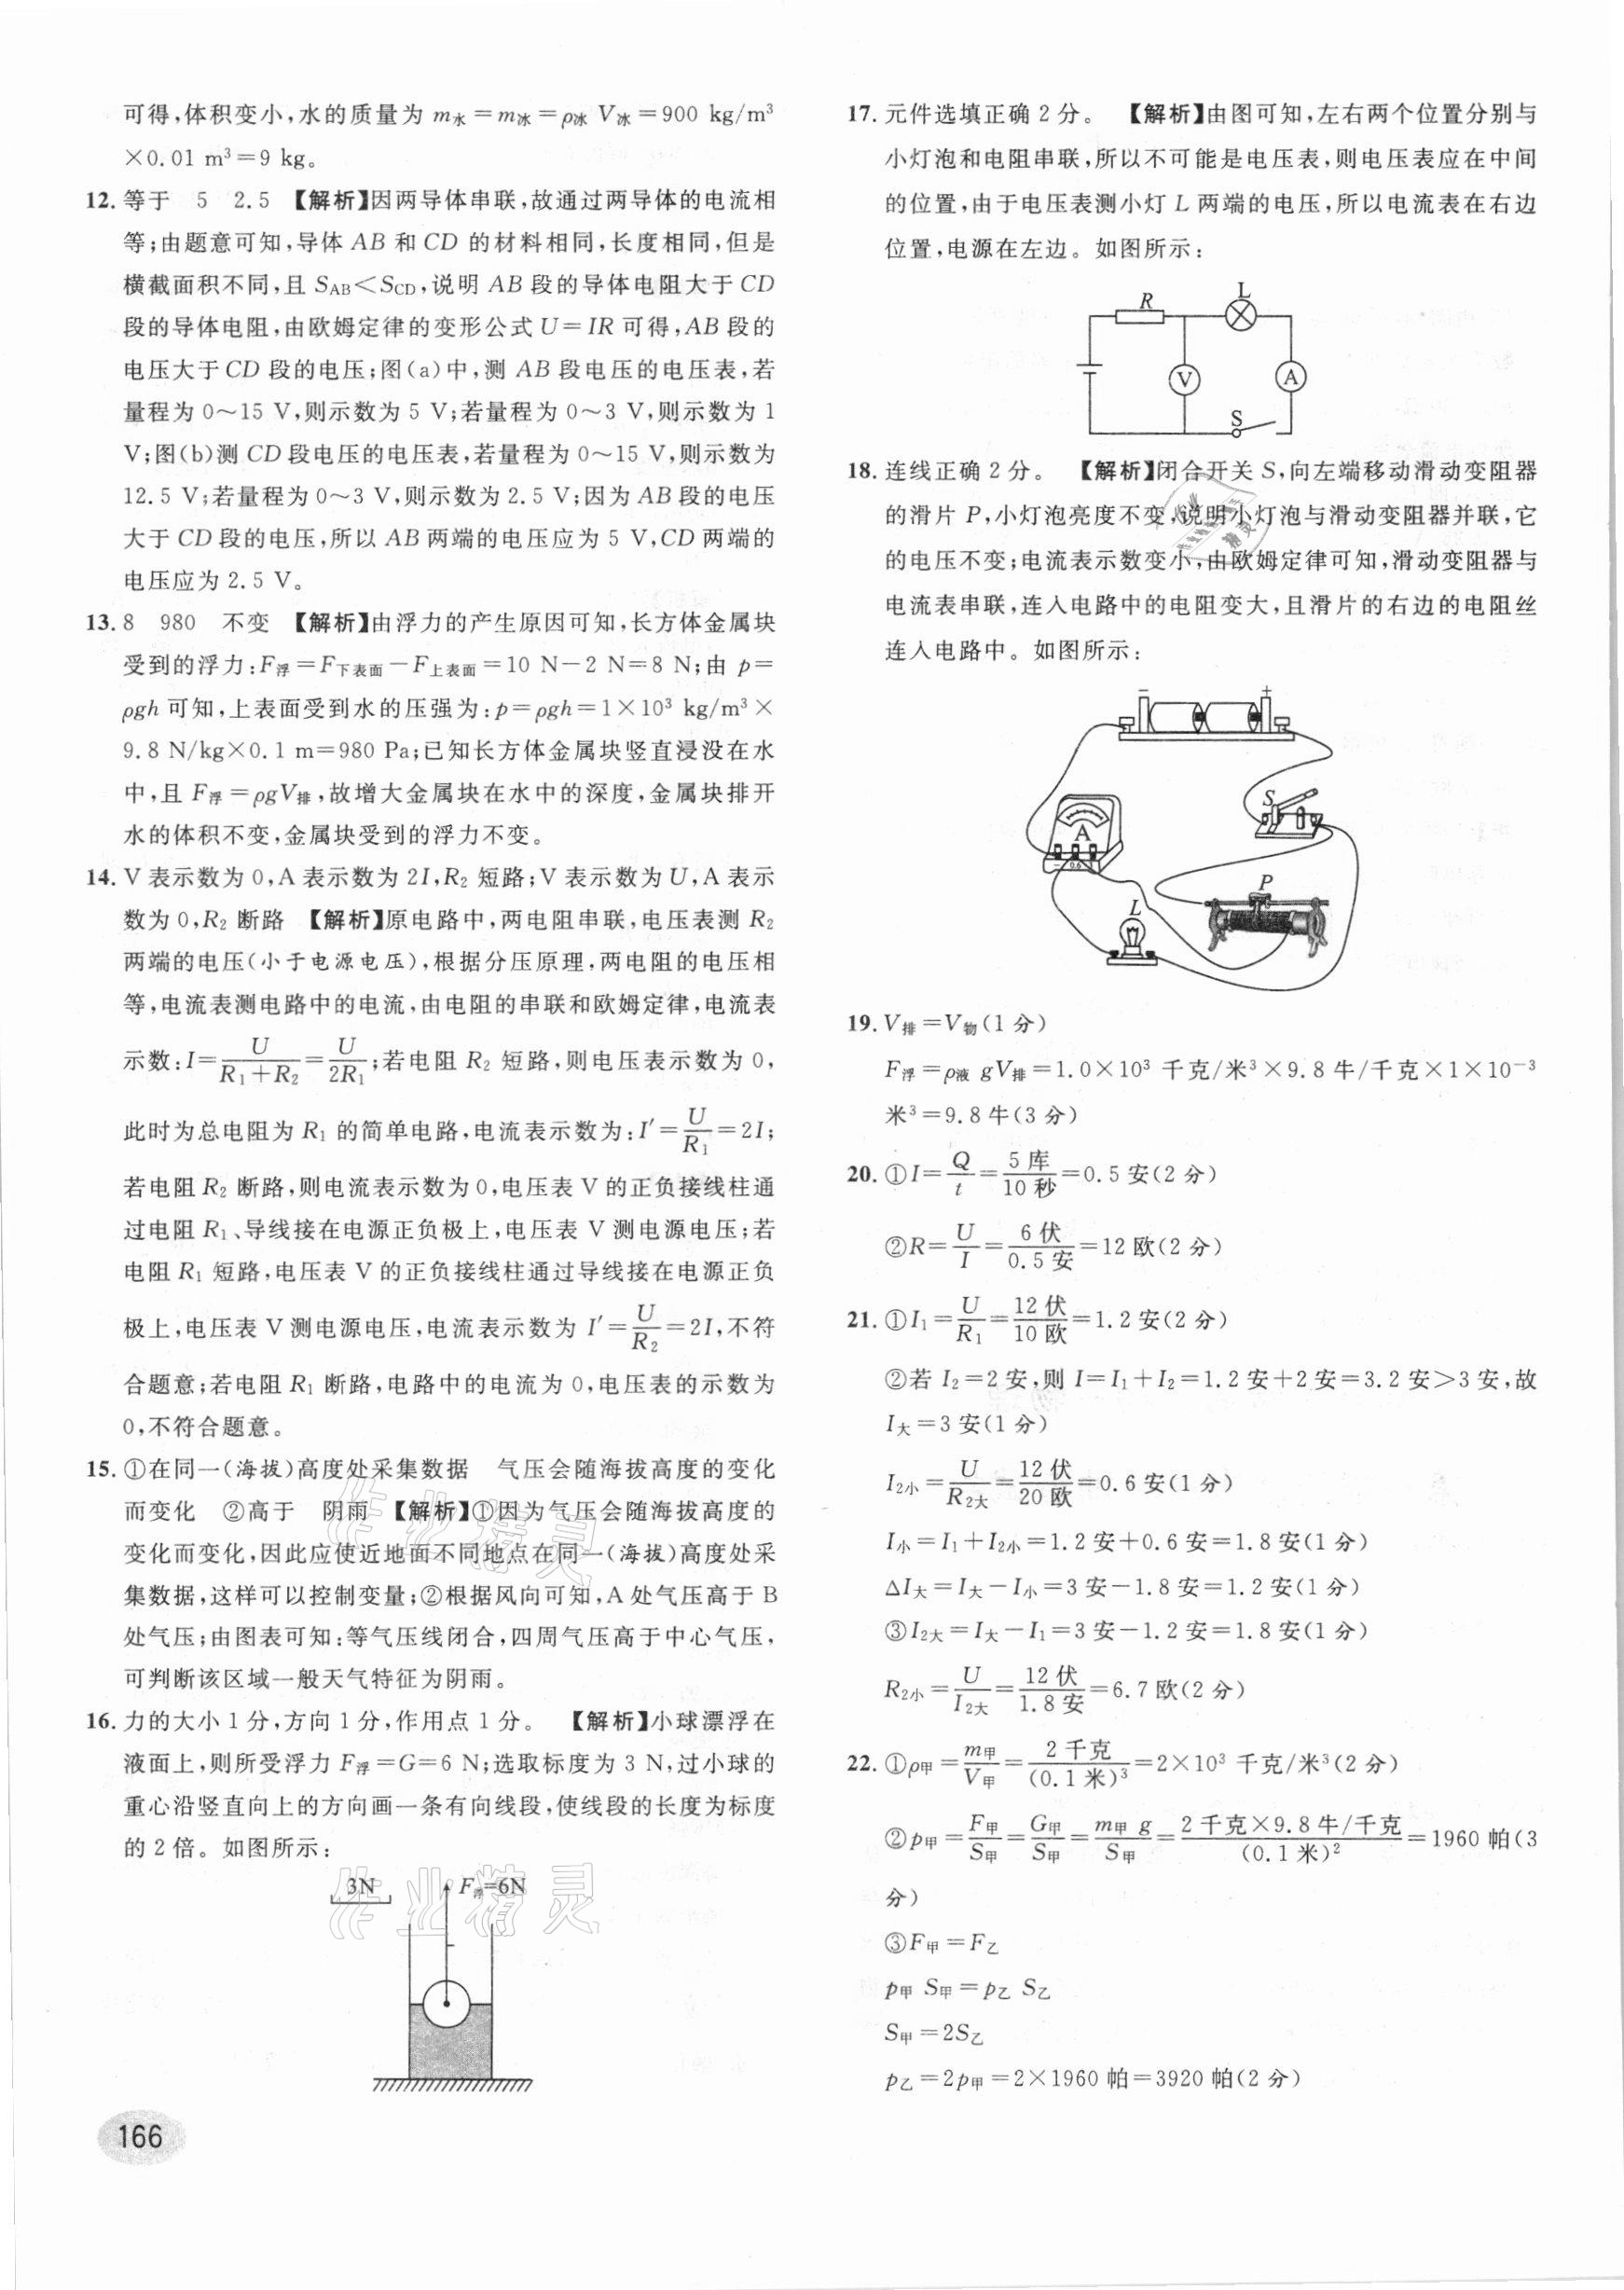 可得,体积变小,水的质量为 m水=m冰=ρ冰 V冰=900 kg/m³
×0.01 m³=9 kg。
12. 等于 5 2.5 【解析】因两导体串联,故通过两导体的电流相
等;由题意可知,导体 AB 和 CD 的材料相同,长度相同,但是
横截面积不同,且 SAB<SCD,说明 AB 段的导体电阻大于 CD
段的导体电阻,由欧姆定律的变形公式 U=IR 可得,AB 段的
电压大于 CD 段的电压;图(a)中,测 AB 段电压的电压表,若
量程为 0～15 V,则示数为 5 V;若量程为 0～3 V,则示数为 1
V;图(b)测 CD 段电压的电压表,若量程为 0～15 V,则示数为
12.5 V;若量程为 0～3 V,则示数为 2.5 V;因为 AB 段的电压
大于 CD 段的电压,所以 AB 两端的电压应为 5 V,CD 两端的
电压应为 2.5 V。
13. 8 980 不变 【解析】由浮力的产生原因可知,长方体金属块
受到的浮力:F浮=F下表面-F上表面=10 N-2 N=8 N;由 p=
ρgh 可知,上表面受到水的压强为:p=ρgh=1×10³ kg/m³×
9.8 N/kg×0.1 m=980 Pa;已知长方体金属块竖直浸没在水
中,且 F浮=ρgV排,故增大金属块在水中的深度,金属块排开
水的体积不变,金属块受到的浮力不变。
14. V 表示数为 0,A 表示数为 2I,R₂ 短路;V 表示数为 U,A 表示
数为 0,R₂ 断路 【解析】原电路中,两电阻串联,电压表测 R₂
两端的电压(小于电源电压),根据分压原理,两电阻的电压相
等,电流表测电路中的电流,由电阻的串联和欧姆定律,电流表
示数:I=U/(R₁+R₂)=U/2R₁;若电阻 R₂ 短路,则电压表示数为 0,
此时为总电阻为 R₁ 的简单电路,电流表示数为:I′=U/R₁=2I;
若电阻 R₂ 断路,则电流表示数为 0,电压表 V 的正负接线柱通
过电阻 R₁、导线接在电源正负极上,电压表 V 测电源电压;若
电阻 R₁ 短路,电压表 V 的正负接线柱通过导线接在电源正负
极上,电压表 V 测电源电压,电流表示数为 I′=U/R₂=2I,不符
合题意;若电阻 R₁ 断路,电路中的电流为 0,电压表的示数为
0,不符合题意。
15. ①在同一(海拔)高度处采集数据 气压会随海拔高度的变化
而变化 ②高于 阴雨 【解析】①因为气压会随海拔高度的
变化而变化,因此应使近地面不同地点在同一(海拔)高度处采
集数据,这样可以控制变量;②根据风向可知,A 处气压高于 B
处气压;由图表可知:等气压线闭合,四周气压高于中心气压,
可判断该区域一般天气特征为阴雨。
16. 力的大小 1 分,方向 1 分,作用点 1 分。 【解析】小球漂浮在
液面上,则所受浮力 F浮=G=6 N;选取标度为 3 N,过小球的
重心沿竖直向上的方向画一条有向线段,使线段的长度为标度
的 2 倍。如图所示:
3N F浮=6N
166
17. 元件选填正确 2 分。 【解析】由图可知,左右两个位置分别与
小灯泡和电阻串联,所以不可能是电压表,则电压表应在中间
的位置,由于电压表测小灯 L 两端的电压,所以电流表在右边
位置,电源在左边。如图所示:
R L
V A
S
18. 连线正确 2 分。 【解析】闭合开关 S,向左端移动滑动变阻器
的滑片 P,小灯泡亮度不变,说明小灯泡与滑动变阻器并联,它
的电压不变;电流表示数变小,由欧姆定律可知,滑动变阻器与
电流表串联,连入电路中的电阻变大,且滑片的右边的电阻丝
连入电路中。如图所示:
- +
S
A
- 0.6
P
L
19. V排=V物(1 分)
F浮=ρ液 gV排=1.0×10³ 千克/米³×9.8 牛/千克×1×10⁻³
米³=9.8 牛(3 分)
20. ①I=Q/t=5 库/10 秒=0.5 安(2 分)
②R=U/I=6 伏/0.5 安=12 欧(2 分)
21. ①I₁=U/R₁=12 伏/10 欧=1.2 安(2 分)
②若 I₂=2 安,则 I=I₁+I₂=1.2 安+2 安=3.2 安>3 安,故
I大=3 安(1 分)
I₂小=U/R₂大=12 伏/20 欧=0.6 安(1 分)
I小=I₁+I₂小=1.2 安+0.6 安=1.8 安(1 分)
ΔI大=I大-I小=3 安-1.8 安=1.2 安(1 分)
③I₂大=I大-I₁=3 安-1.2 安=1.8 安(1 分)
R₂小=U/I₂大=12 伏/1.8 安=6.7 欧(2 分)
22. ①ρ甲=m甲/V甲=2 千克/(0.1 米)³=2×10³ 千克/米³(2 分)
②p甲=F甲/S甲=G甲/S甲=m甲 g/S甲=2 千克×9.8 牛/千克/(0.1 米)²=1960 帕(3
分)
③F甲=F乙
p甲 S甲=p乙 S乙
S甲=2S乙
p乙=2p甲=2×1960 帕=3920 帕(2 分)
作业精灵
作业精灵